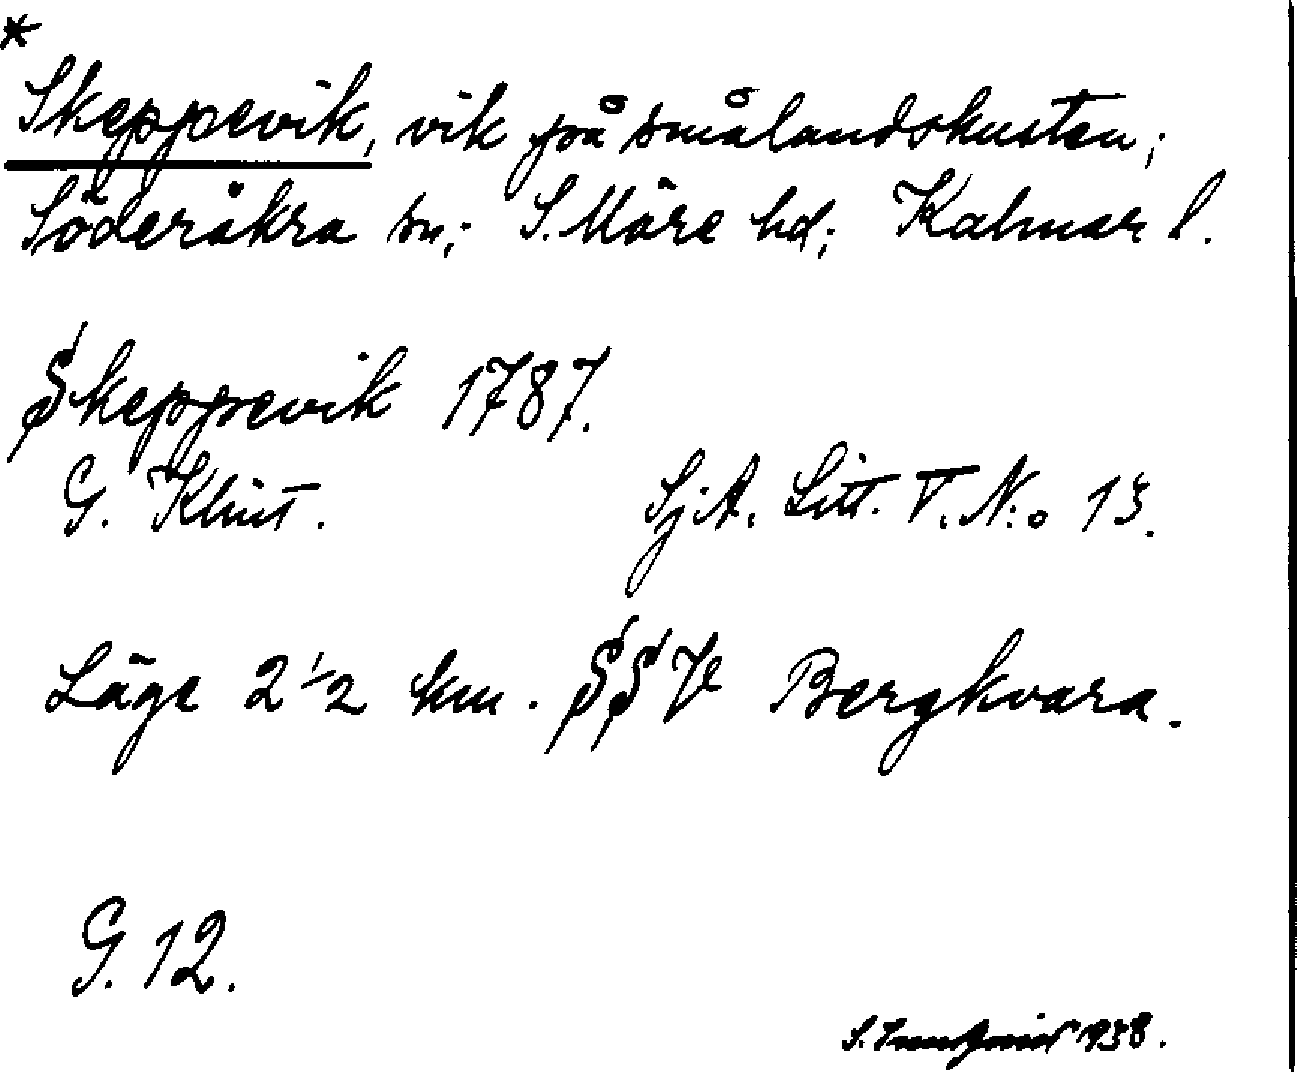 *
Skeppevik, vik på smålandskusten;
Söderåkra sn; S. Möre hd; Kalmar l.
Skeppevik 1787.
G. Klint. SjA. Litt. V. N:o 13.
Läge 2 1/2 km. SSV Bergkvara.
G. 12.
S. 1938.